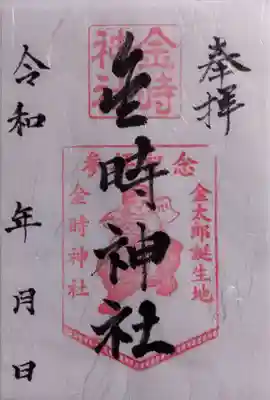 奉拝
金時
神社
金時神社
参拝記念
金太郎誕生地
金時神社
令和 年 月 日